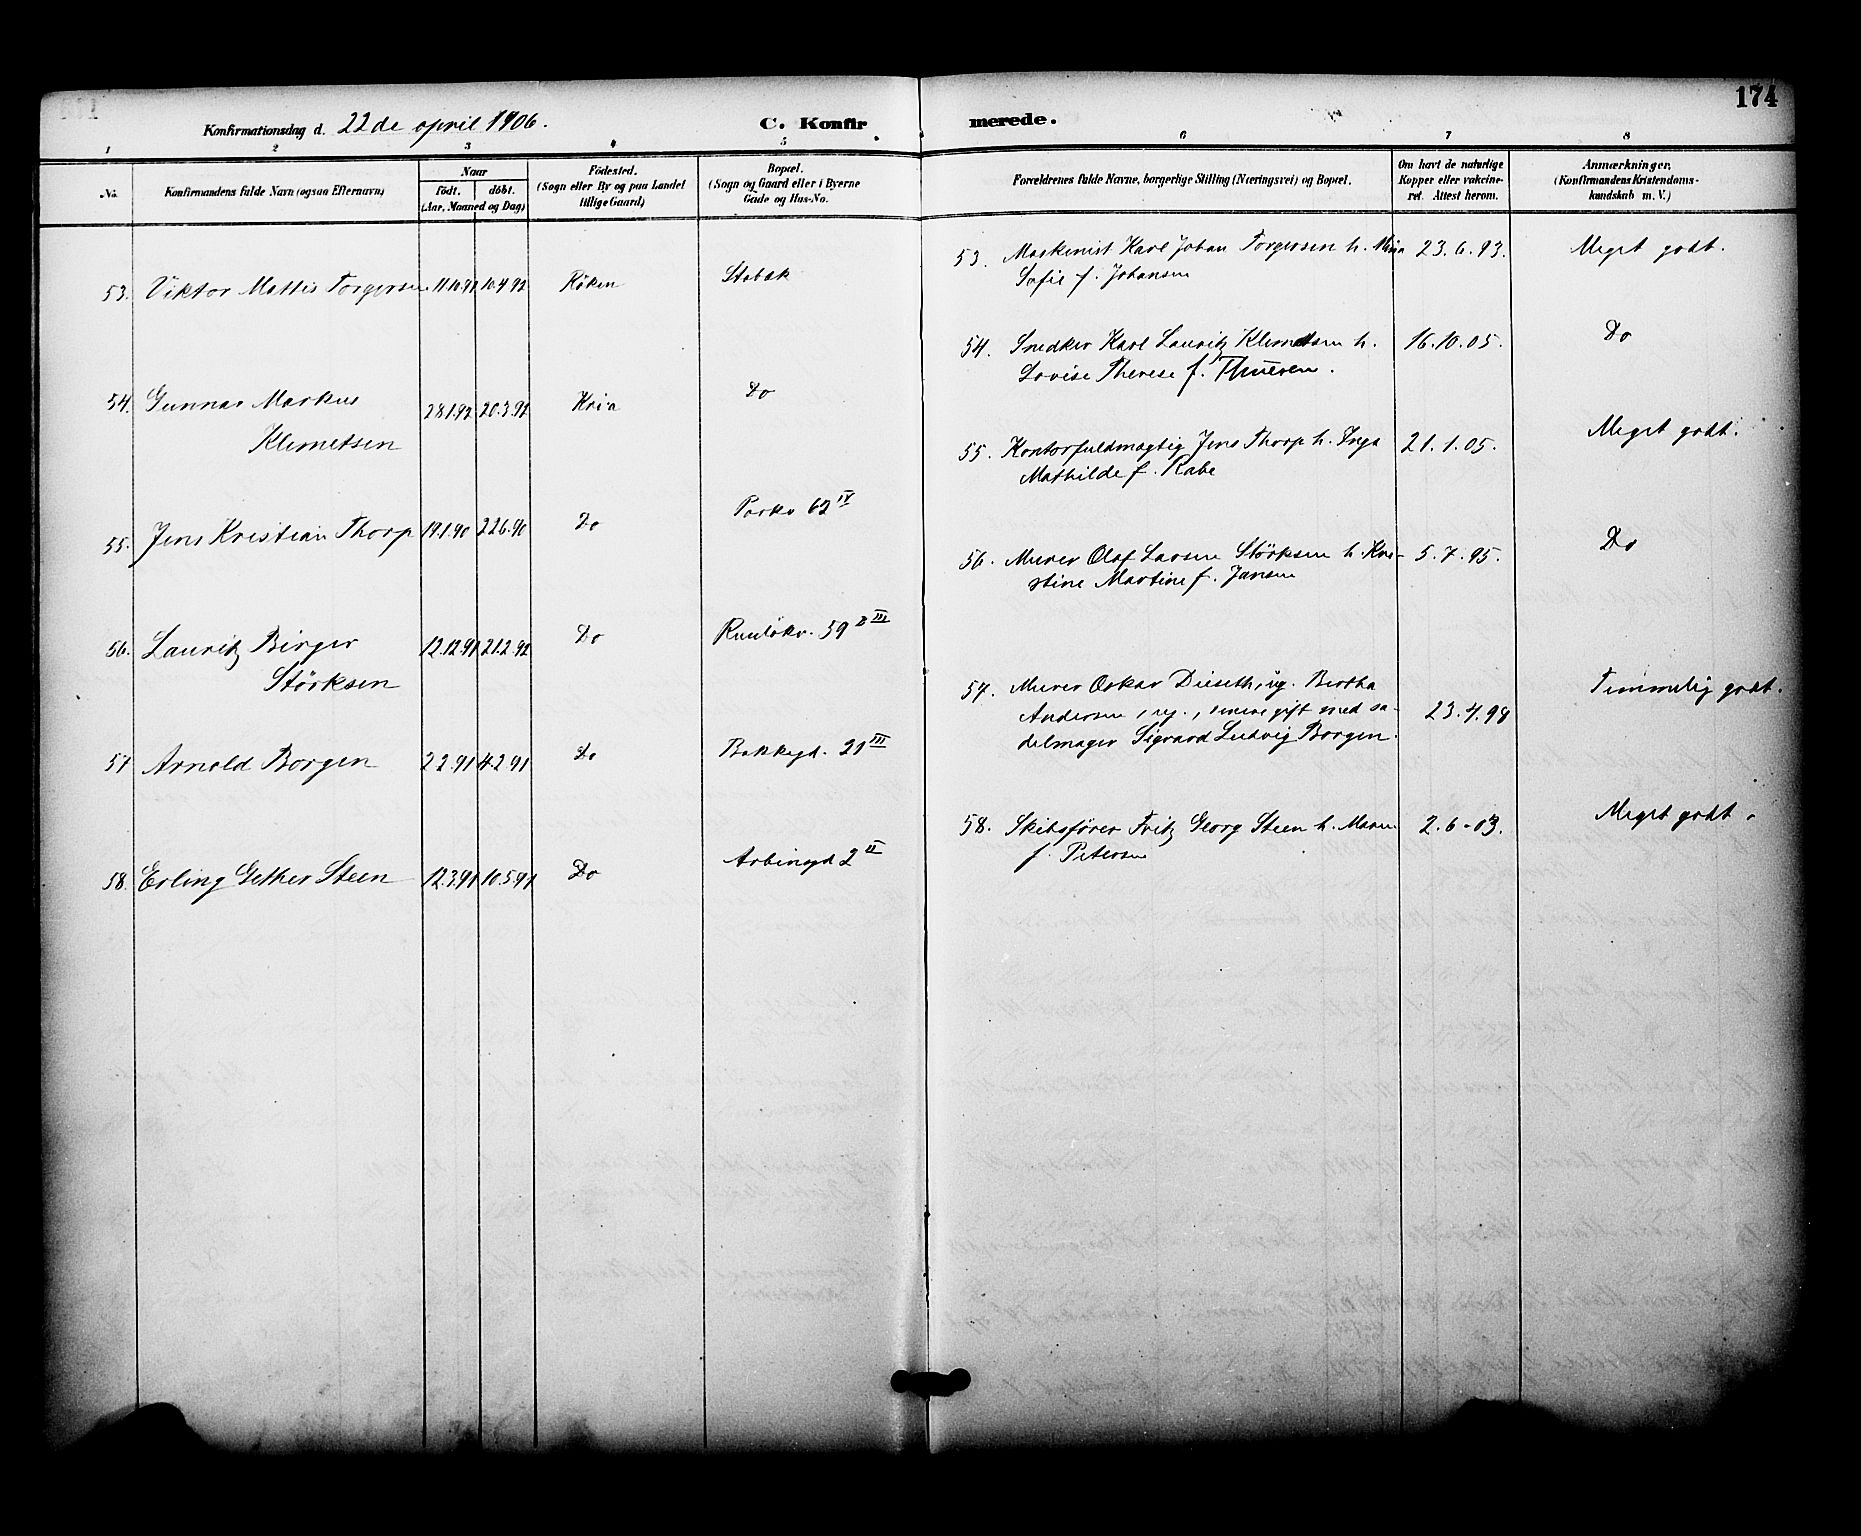 174
Konfirmationsdag d. 22de april 1906.
C. Konfirmerede.
1 2 3 4 5 6 7 8
No.
Konfirmandens fulde Navn (ogsaa Efternavn)
Naar
födt. döbt.
(Aar, Maaned og Dag)
Födested.
(Sogn eller By og paa Landet
tillige Gaard)
Bopæl.
(Sogn og Gaard eller i Byerne
Gade og Hus-No.
Forældrenes fulde Navne, borgerlige Stilling (Næringsvei) og Bopæl.
Om havt de naturlige
Kopper eller vakcine-
ret. Attest herom.
Anmærkninger.
(Konfirmandens Kristendoms-
kundskab m. V.)
53. Viktor Mattis Torgersen 11.10.91 10.4.92 Röken Stabæk
54. Gunnar Markus 28.1.92 20.3.92 Kria Do
Klemetsen
55. Jens Kristian Thorp 19.1.90 22.6.90 Do Parkv 62 IV
56. Lauritz Birger 12.12.91 21.2.92 Do Ruselökv. 59 III
Störksen
57 Arnold Borgen 2.2.91 4.2.91 Do Bakkegd. 21 III
58. Erling Gether Steen 12.3.91 10.5.91 Do Arbingd 2 II
53. Maskinist Karl Johan Torgersen h. Mina 23.6.93. Meget godt.
Sofie f. Johansen
54. Snedker Karl Lauritz Klemetsen h. 16.10.05. Do
Lovise Therese f. Thuesen.
55. Kontorfuldmægtig Jens Thorp h. Inga 21.1.05. Meget godt.
Mathilde f. Rabe
56. Murer Olaf Larsen Störksen h. Kri- 5.7.95. Do
stine Martine f. Jansen
57. Murer Oskar Dieseth, ug. Bertha Temmelig godt.
Andersen, ug., senere gift med sa- 23.4.98
delmager Sigvard Ludvig Borgen.
58. Skibsfører Fritz Georg Steen h. Maren 2.6-03. Meget godt.
f. Petersen